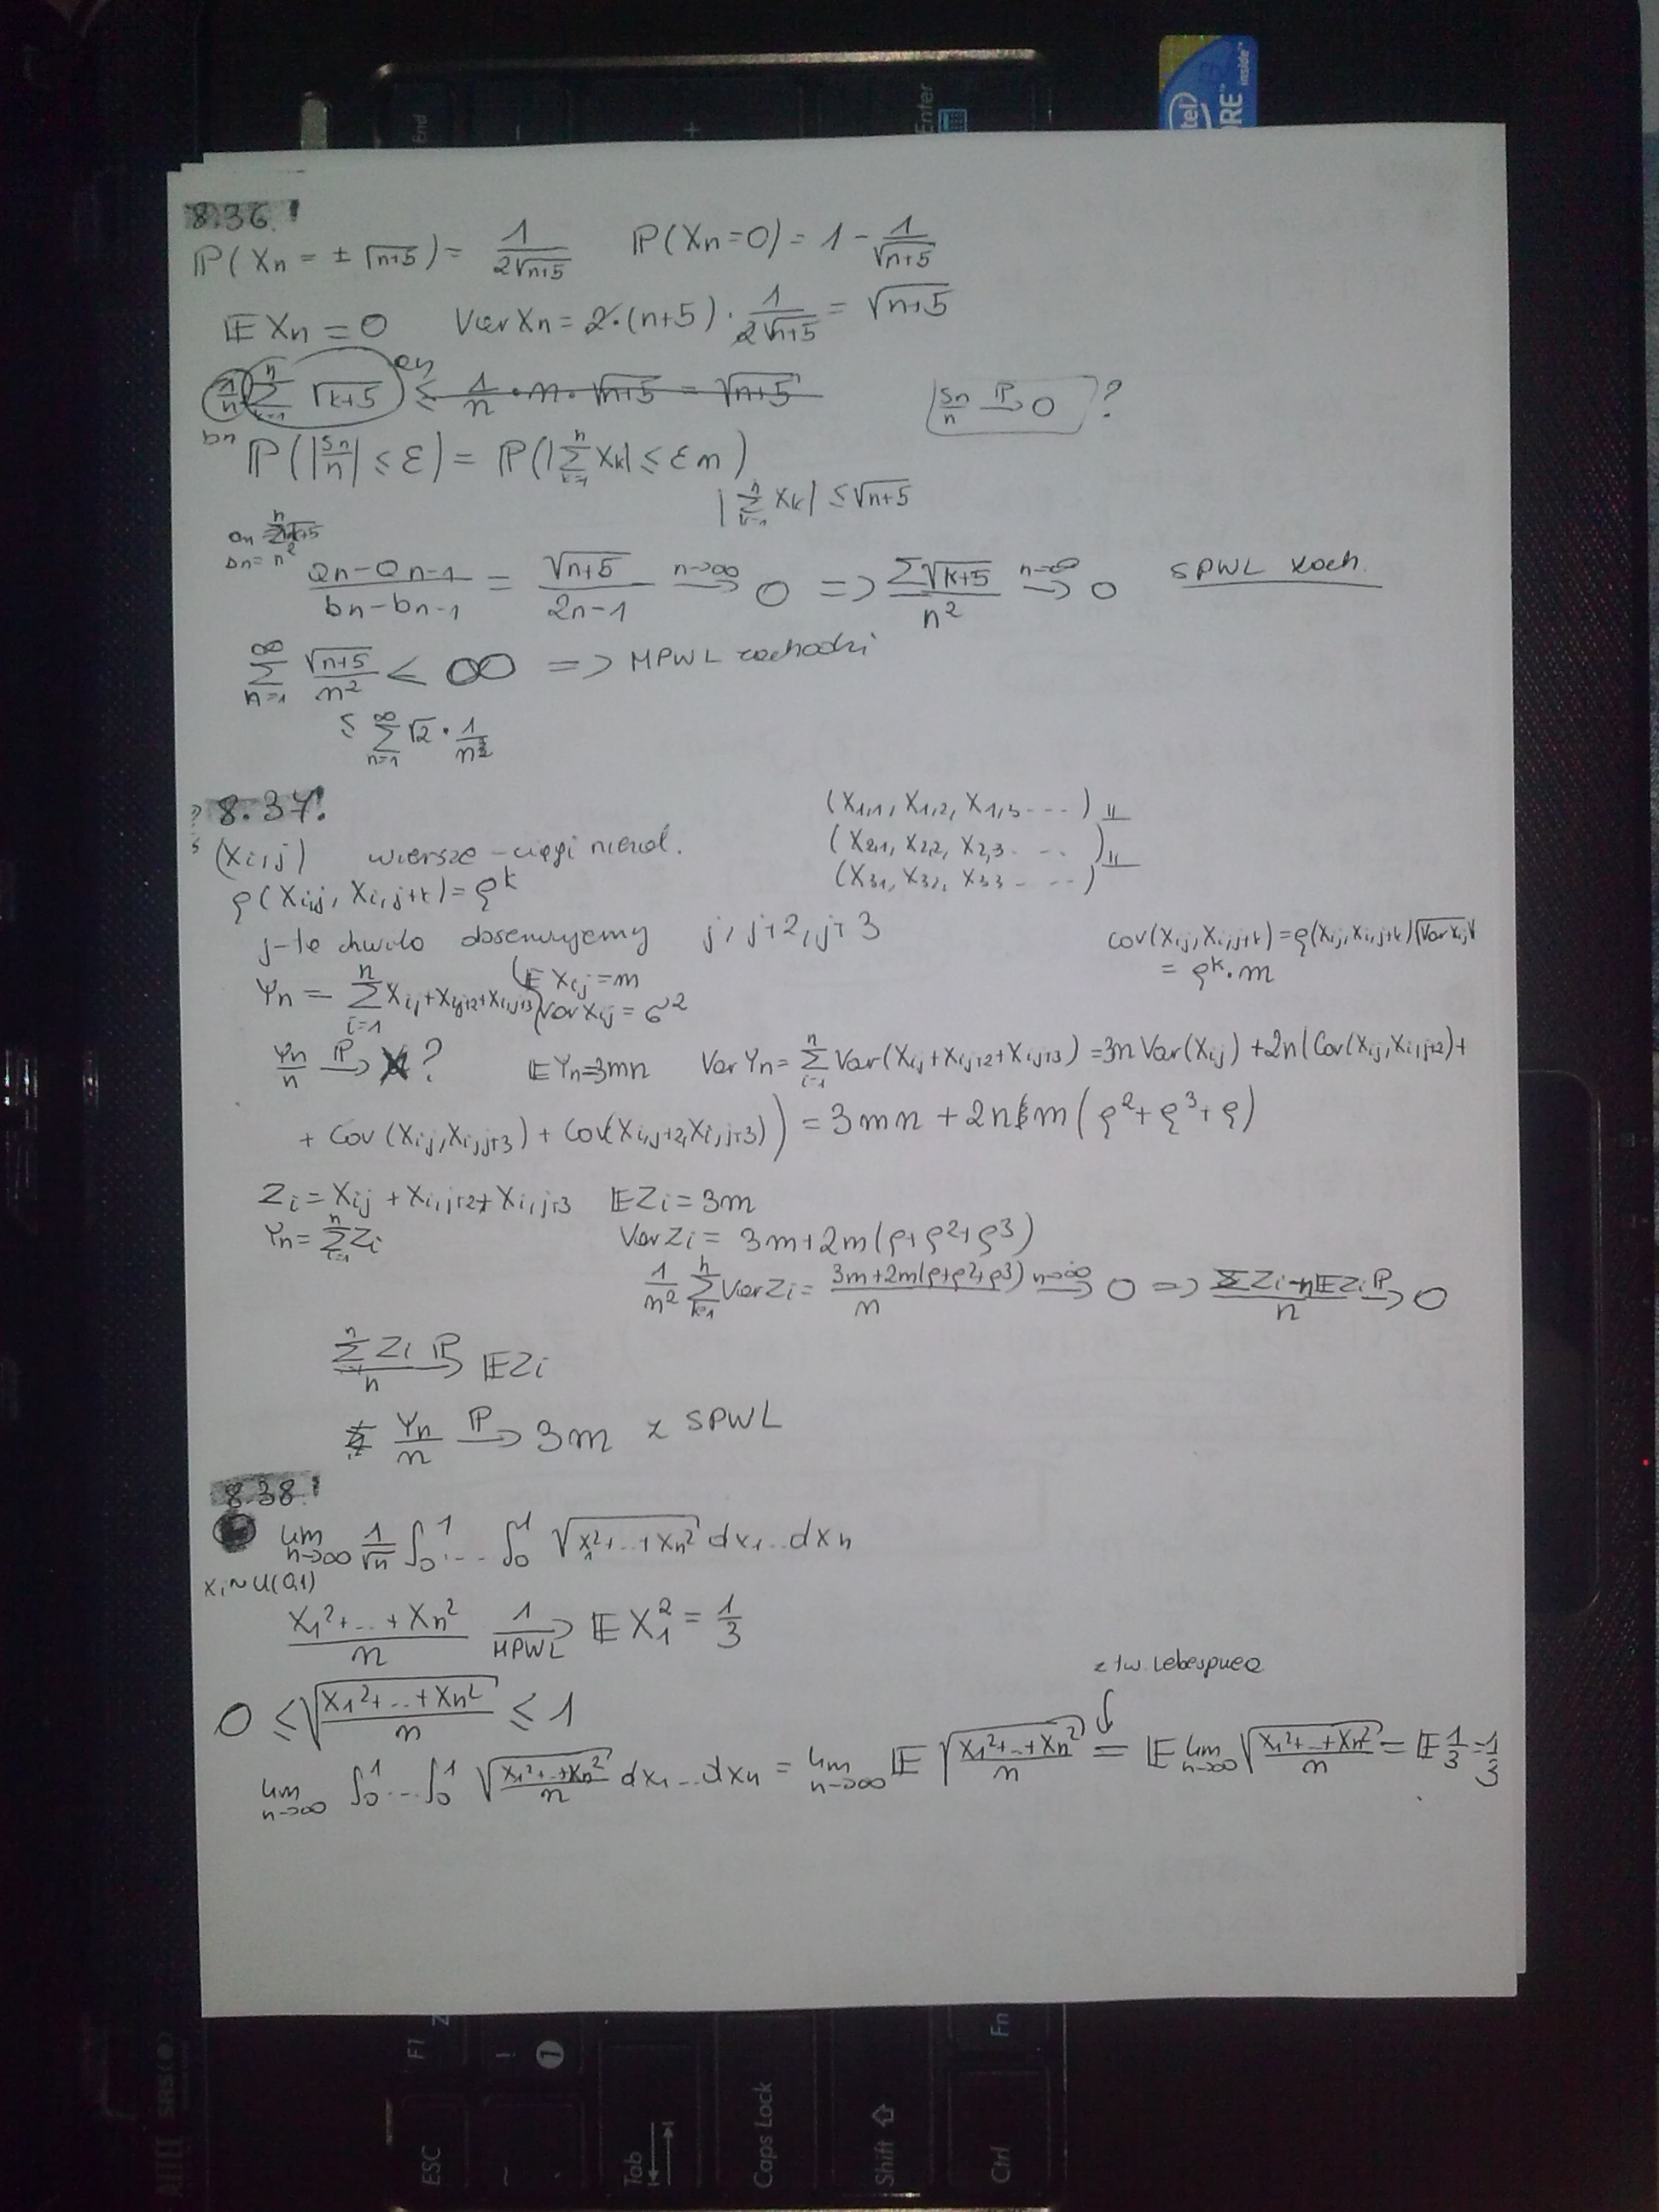 End
-
+
Enter
intel
CORE™
inside™
8.36.!
ℙ(Xn = ± √n+5) = 1/(2√n+5)   ℙ(Xn=0) = 1 - 1/√n+5
𝔼Xn = 0   Var Xn = 2·(n+5)·1/(2√n+5) = √n+5
1/n Σ_{k=1}^n √k+5 ≤ 1/n · n · √n+5 = √n+5   an
Sn/n →ℙ 0 ?
bn
ℙ(|Sn/n| ≤ ε) = ℙ(|Σ_{k=1}^n Xk| ≤ εn)
|Σ_{k=1}^n Xk| ≤ √n+5
an = Σ^n √k+5
bn = n²
(an-an-1)/(bn-bn-1) = √n+5/(2n-1) →(n→∞) 0 => Σ√k+5/n² →(n→∞) 0   SPWL zach.
Σ_{n=1}^∞ √n+5/n² < ∞ => MPWL zachodzi
≤ Σ_{n=1}^∞ √2 · 1/n^{3/2}
? 8.37!
(X1,1, X1,2, X1,3 ...) ⫫
(Xi,j)   wiersze - ciągi niezal.   (X2,1, X2,2, X2,3 ...) ⫫
(X31, X32, X33 ...)
ρ(Xi,j, Xi,j+k) = ρ^k
j-te chwila obserwujemy j, j+2, j+3
cov(Xij, Xi,j+k) = ρ(Xij, Xi,j+k)√Var Xij √
= ρ^k·m
Yn = Σ_{i=1}^n Xi,j+Xi,j+2+Xi,j+3   𝔼Xij = m
Var Xij = σ²
Yn/n →ℙ X?   𝔼Yn=3mn   Var Yn = Σ_{i=1}^n Var(Xij+Xij+2+Xij+3) = 3n Var(Xij) + 2n(Cov(Xij, Xi,j+2)+
+ Cov(Xij, Xi,j+3) + Cov(Xi,j+2, Xi,j+3)) = 3mn + 2nm(ρ²+ρ³+ρ)
Zi = Xij + Xi,j+2 + Xi,j+3   𝔼Zi = 3m
Yn = Σ_{i=1}^n Zi   Var Zi = 3m+2m(ρ+ρ²+ρ³)
1/n² Σ_{k=1}^n Var Zi = (3m+2m(ρ+ρ²+ρ³))/n →(n→∞) 0 => (ΣZi - n𝔼Zi)/n →ℙ 0
Σ^n Zi/n →ℙ 𝔼Zi
Yn/n →ℙ 3m z SPWL
8.38!
lim_{n→∞} 1/√n ∫_0^1 ... ∫_0^1 √(x1²+...+xn²) dx1...dxn
Xi~U(0,1)
(X1²+...+Xn²)/n →(1, MPWL) 𝔼X1² = 1/3
z tw. Lebesgue'a
0 ≤ √((X1²+...+Xn²)/n) ≤ 1
lim_{n→∞} ∫_0^1 ... ∫_0^1 √((x1²+...+xn²)/n) dx1...dxn = lim_{n→∞} 𝔼√((X1²+...+Xn²)/n) = 𝔼 lim_{n→∞} √((X1²+...+Xn²)/n) = 𝔼 1/3 = 1/3
ESC
F1
~
!
Tab
Caps Lock
Shift
Ctrl
Fn
Z
SRS